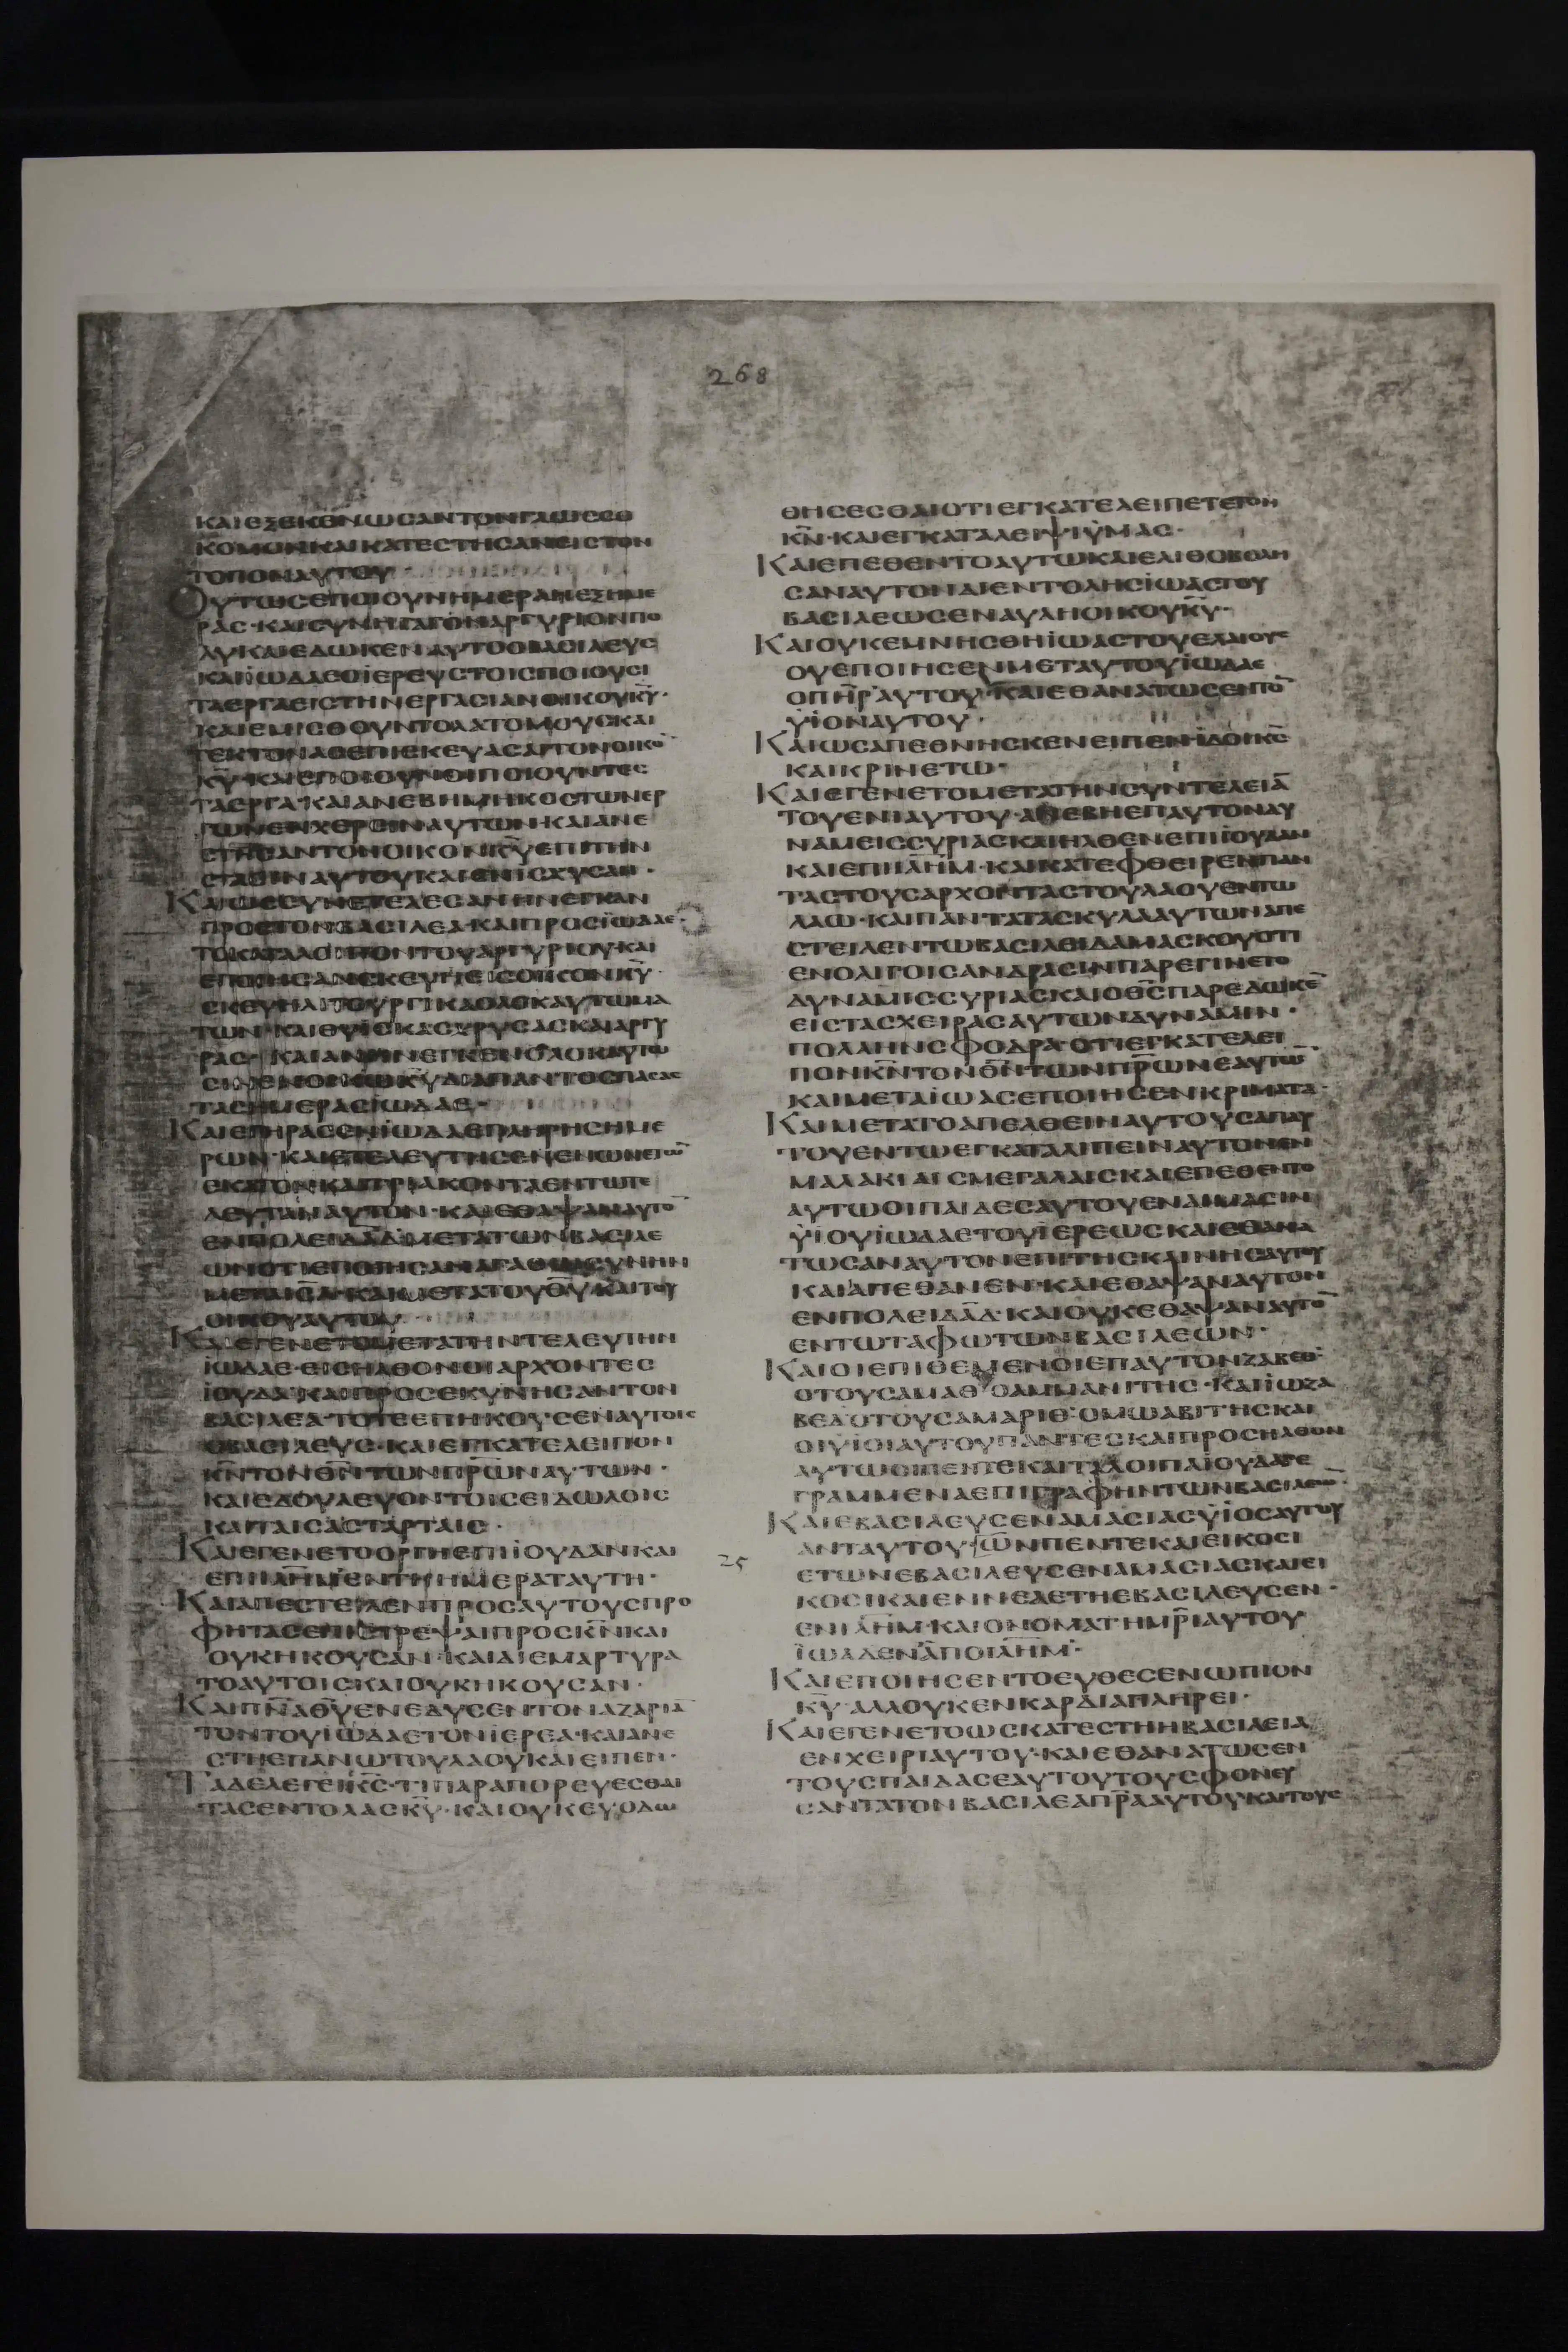 268
ΚΑΙΕΞΕΚΕΝΩСΑΝΤΟΝΓΛΩССΟ
ΚΟΜΟΝΚΑΙΚΑΤΕСΤΗСΑΝΕΙСΤΟΝ
ΤΟΠΟΝΑΥΤΟΥ·
ΟΥΤΩСΕΠΟΙΟΥΝΗΜΕΡΑΝΕΞΗΜΕ
ΡΑС·ΚΑΙСΥΝΗΓΑΓΟΝΑΡΓΥΡΙΟΝΠΟ
ΛΥΚΑΙΕΔΩΚΕΝΑΥΤΟΟΒΑСΙΛΕΥС
ΚΑΙΪΩΔΑΕΟΪΕΡΕΥСΤΟΙСΠΟΙΟΥСΙ
ΤΑΕΡΓΑΕΙСΤΗΝΕΡΓΑСΙΑΝΟΙΚΟΥΚ̅Υ̅·
ΚΑΙΕΜΙСΘΟΥΝΤΟΛΑΤΟΜΟΥСΚΑΙ
ΤΕΚΤΟΝΑСΕΠΙСΚΕΥΑСΑΙΤΟΝΟΙΚΟ̅
Κ̅Υ̅·ΚΑΙΕΠΟΙΟΥΝΟΙΠΟΙΟΥΝΤΕС
ΤΑΕΡΓΑ·ΚΑΙΑΝΕΒΗΜΗΚΟСΤΩΝΕΡ
ΓΩΝΕΝΧΕΡСΙΝΑΥΤΩΝ·ΚΑΙΑΝΕ
СΤΗСΑΝΤΟΝΟΙΚΟΝΚ̅Υ̅ΕΠΙΤΗΝ
СΤΑСΙΝΑΥΤΟΥΚΑΙΕΝΙСΧΥСΑΝ·
ΚΑΙΩССΥΝΕΤΕΛΕСΑΝΗΝΕΓΚΑΝ
ΠΡΟСΤΟΝΒΑСΙΛΕΑ·ΚΑΙΠΡΟСΪΩΔΑΕ·
ΤΟΚΑΤΑΛΟΙΠΟΝΤΟΥΑΡΓΥΡΙΟΥΚΑΙ
ΕΠΟΙΗСΑΝСΚΕΥΗΕΙСΟΙΚΟΝΚ̅Υ̅·
СΚΕΥΗΛΙΤΟΥΡΓΙΚΑΟΛΟΚΑΥΤΩΜΑ
ΤΩΝ·ΚΑΙΘΥΙСΚΑСΧΡΥСΑСΚΑΙΑΡΓΥ
ΡΑС·ΚΑΙΑΝΗΝΕΓΚΕΝΟΛΟΚΑΥΤΩ
СΙΝΕΝΟΙΚΩΚ̅Υ̅ΔΙΑΠΑΝΤΟСΠΑСΑС
ΤΑСΗΜΕΡΑСΪΩΔΑΕ·
ΚΑΙΕΓΗΡΑСΕΝΪΩΔΑΕΠΛΗΡΗСΗΜΕ
ΡΩΝ·ΚΑΙΕΤΕΛΕΥΤΗСΕΝΕΝΩΝΕΤΩ̅
ΕΚΑΤΟΝΚΑΙΤΡΙΑΚΟΝΤΑΕΝΤΩΤΕ
ΛΕΥΤΑΝΑΥΤΟΝ·ΚΑΙΕΘΑΨΑΝΑΥΤΟ̅
ΕΝΠΟΛΕΙΔ̅Α̅Δ̅·ΜΕΤΑΤΩΝΒΑСΙΛΕ
ΩΝΟΤΙΕΠΟΙΗСΑΝΑΓΑΘΩСΥΝΗΝ
ΜΕΤΑΙ̅С̅Λ̅·ΚΑΙΜΕΤΑΤΟΥΘ̅Υ̅ΚΑΙΤΟΥ
ΟΙΚΟΥΑΥΤΟΥ·
ΚΑΙΕΓΕΝΕΤΟΜΕΤΑΤΗΝΤΕΛΕΥΤΗΝ
ΪΩΔΑΕ·ΕΙСΗΛΘΟΝΟΙΑΡΧΟΝΤΕС
ΪΟΥΔΑ·ΚΑΙΠΡΟСΕΚΥΝΗСΑΝΤΟΝ
ΒΑСΙΛΕΑ·ΤΟΤΕΕΠΗΚΟΥСΕΝΑΥΤΟΙС
ΟΒΑСΙΛΕΥС·ΚΑΙΕΓΚΑΤΕΛΕΙΠΟΝ
Κ̅Ν̅ΤΟΝΘ̅Ν̅ΤΩΝΠ̅Ρ̅Ω̅Ν̅ΑΥΤΩΝ·
ΚΑΙΕΔΟΥΛΕΥΟΝΤΟΙСΕΙΔΩΛΟΙС
ΚΑΙΤΑΙСΑСΤΑΡΤΑΙС·
ΚΑΙΕΓΕΝΕΤΟΟΡΓΗΕΠΙΪΟΥΔΑΝΚΑΙ
ΕΠΙΙ̅Λ̅Η̅Μ̅ΕΝΤΗΗΜΕΡΑΤΑΥΤΗ·
ΚΑΙΑΠΕСΤΕΙΛΕΝΠΡΟСΑΥΤΟΥСΠΡΟ
ΦΗΤΑСΕΠΙСΤΡΕΨΑΙΠΡΟСΚ̅Ν̅ΚΑΙ
ΟΥΚΗΚΟΥСΑΝ·ΚΑΙΔΙΕΜΑΡΤΥΡΑ
ΤΟΑΥΤΟΙСΚΑΙΟΥΚΗΚΟΥСΑΝ·
ΚΑΙΠ̅Ν̅Α̅Θ̅Υ̅ΕΝΕΔΥСΕΝΤΟΝΑΖΑΡΙΑ̅
ΤΟΝΤΟΥΪΩΔΑΕΤΟΝΪΕΡΕΑ·ΚΑΙΑΝΕ
СΤΗΕΠΑΝΩΤΟΥΛΑΟΥΚΑΙΕΙΠΕΝ·
ΤΑΔΕΛΕΓΕΙΚ̅С̅·ΤΙΠΑΡΑΠΟΡΕΥΕСΘΑΙ
ΤΑСΕΝΤΟΛΑСΚ̅Υ̅·ΚΑΙΟΥΚΕΥΟΔΩ
ΘΗСΕСΘΑΙΟΤΙΕΓΚΑΤΕΛΕΙΠΕΤΕΤΟΝ
Κ̅Ν̅·ΚΑΙΕΓΚΑΤΑΛΕΙΨΙΫΜΑС·
ΚΑΙΕΠΕΘΕΝΤΟΑΥΤΩΚΑΙΕΛΙΘΟΒΟΛΗ
СΑΝΑΥΤΟΝΔΙΕΝΤΟΛΗСΪΩΑСΤΟΥ
ΒΑСΙΛΕΩСΕΝΑΥΛΗΟΙΚΟΥΚ̅Υ̅·
ΚΑΙΟΥΚΕΜΝΗСΘΗΪΩΑСΤΟΥΕΛΑΙΟΥС
ΟΥΕΠΟΙΗСΕΝΜΕΤΑΥΤΟΥΪΩΔΑΕ
ΟΠ̅Η̅Ρ̅ΑΥΤΟΥ·ΚΑΙΕΘΑΝΑΤΩСΕΝΤΟ̅
ΫΙΟΝΑΥΤΟΥ·
ΚΑΙΩСΑΠΕΘΝΗСΚΕΝΕΙΠΕΝΪΔΟΙΚ̅С̅
ΚΑΙΚΡΙΝΕΤΩ·
ΚΑΙΕΓΕΝΕΤΟΜΕΤΑΤΗΝСΥΝΤΕΛΕΙΑ̅
ΤΟΥΕΝΙΑΥΤΟΥ·ΑΝΕΒΗΕΠΑΥΤΟΝΔΥ
ΝΑΜΕΙССΥΡΙΑСΚΑΙΗΛΘΕΝΕΠΙΪΟΥΔΑΝ
ΚΑΙΕΠΙΙ̅Λ̅Η̅Μ̅·ΚΑΙΚΑΤΕΦΘΕΙΡΕΝΠΑΝ
ΤΑСΤΟΥСΑΡΧΟΝΤΑСΤΟΥΛΑΟΥΕΝΤΩ
ΛΑΩ·ΚΑΙΠΑΝΤΑΤΑСΚΥΛΑΑΥΤΩΝΑΠΕ
СΤΕΙΛΕΝΤΩΒΑСΙΛΕΙΔΑΜΑСΚΟΥΟΤΙ
ΕΝΟΛΙΓΟΙСΑΝΔΡΑСΙΝΠΑΡΕΓΙΝΕΤΟ
ΔΥΝΑΜΙССΥΡΙΑСΚΑΙΟΘ̅С̅ΠΑΡΕΔΩΚΕ̅
ΕΙСΤΑСΧΕΙΡΑСΑΥΤΩΝΔΥΝΑΜΙΝ·
ΠΟΛΛΗΝСΦΟΔΡΑ·ΟΤΙΕΓΚΑΤΕΛΕΙ
ΠΟΝΚ̅Ν̅ΤΟΝΘ̅Ν̅ΤΩΝΠ̅Ρ̅Ω̅Ν̅ΕΑΥΤΩ̅·
ΚΑΙΜΕΤΑΪΩΑСΕΠΟΙΗСΕΝΚΡΙΜΑΤΑ·
ΚΑΙΜΕΤΑΤΟΑΠΕΛΘΕΙΝΑΥΤΟΥСΑΠΑΥ
ΤΟΥΕΝΤΩΕΓΚΑΤΑΛΙΠΕΙΝΑΥΤΟΝΕΝ
ΜΑΛΑΚΙΑΙСΜΕΓΑΛΑΙСΚΑΙΕΠΕΘΕΝΤΟ
ΑΥΤΩΟΙΠΑΙΔΕСΑΥΤΟΥΕΝΑΙΜΑСΙΝ
ΫΙΟΥΪΩΔΑΕΤΟΥΪΕΡΕΩСΚΑΙΕΘΑΝΑ
ΤΩСΑΝΑΥΤΟΝΕΠΙΤΗСΚΛΙΝΗСΑΥΤΟΥ
ΚΑΙΑΠΕΘΑΝΕΝ·ΚΑΙΕΘΑΨΑΝΑΥΤΟΝ
ΕΝΠΟΛΕΙΔ̅Α̅Δ̅·ΚΑΙΟΥΚΕΘΑΨΑΝΑΥΤΟ̅
ΕΝΤΩΤΑΦΩΤΩΝΒΑСΙΛΕΩΝ·
ΚΑΙΟΙΕΠΙΘΕΜΕΝΟΙΕΠΑΥΤΟΝΖΑΒΕΘ·
ΟΤΟΥСΑΜΑΘ·ΟΑΜΜΑΝΙΤΗС·ΚΑΙΪΩΖΑ
ΒΕΔ·ΟΤΟΥСΑΜΑΡΙΘ·ΟΜΩΑΒΙΤΗСΚΑΙ
ΟΙΫΙΟΙΑΥΤΟΥΠΑΝΤΕСΚΑΙΠΡΟСΗΛΘΟΝ
ΑΥΤΩΟΙΠΕΝΤΕΚΑΙΤΑΛΟΙΠΑΪΔΟΥ
ΓΡΑΜΜΕΝΑΕΠΙΓΡΑΦΗΝΤΩΝΒΑСΙΛΕΩ̅·
ΚΑΙΕΒΑСΙΛΕΥСΕΝΑΜΑСΙΑСΫΙΟСΑΥΤΟΥ
ΑΝΤΑΥΤΟΥ·ΩΝΠΕΝΤΕΚΑΙΕΙΚΟСΙ
25
ΕΤΩΝΕΒΑСΙΛΕΥСΕΝΑΜΑСΙΑСΚΑΙΕΙ
ΚΟСΙΚΑΙΕΝΝΕΑΕΤΗΕΒΑСΙΛΕΥСΕΝ·
ΕΝΙ̅Λ̅Η̅Μ̅·ΚΑΙΟΝΟΜΑΤΗΜ̅Ρ̅Ι̅ΑΥΤΟΥ
ΪΩΑΔΕΝΑΠΟΙ̅Λ̅Η̅Μ̅·
ΚΑΙΕΠΟΙΗСΕΝΤΟΕΥΘΕСΕΝΩΠΙΟΝ
Κ̅Υ̅·ΑΛΛΟΥΚΕΝΚΑΡΔΙΑΠΛΗΡΕΙ·
ΚΑΙΕΓΕΝΕΤΟΩСΚΑΤΕСΤΗΗΒΑСΙΛΕΙΑ
ΕΝΧΕΙΡΙΑΥΤΟΥ·ΚΑΙΕΘΑΝΑΤΩСΕΝ
ΤΟΥСΠΑΙΔΑСΕΑΥΤΟΥΤΟΥСΦΟΝΕΥ
СΑΝΤΑΤΟΝΒΑСΙΛΕΑΠ̅Ρ̅Α̅ΑΥΤΟΥΚΑΙΤΟΥС